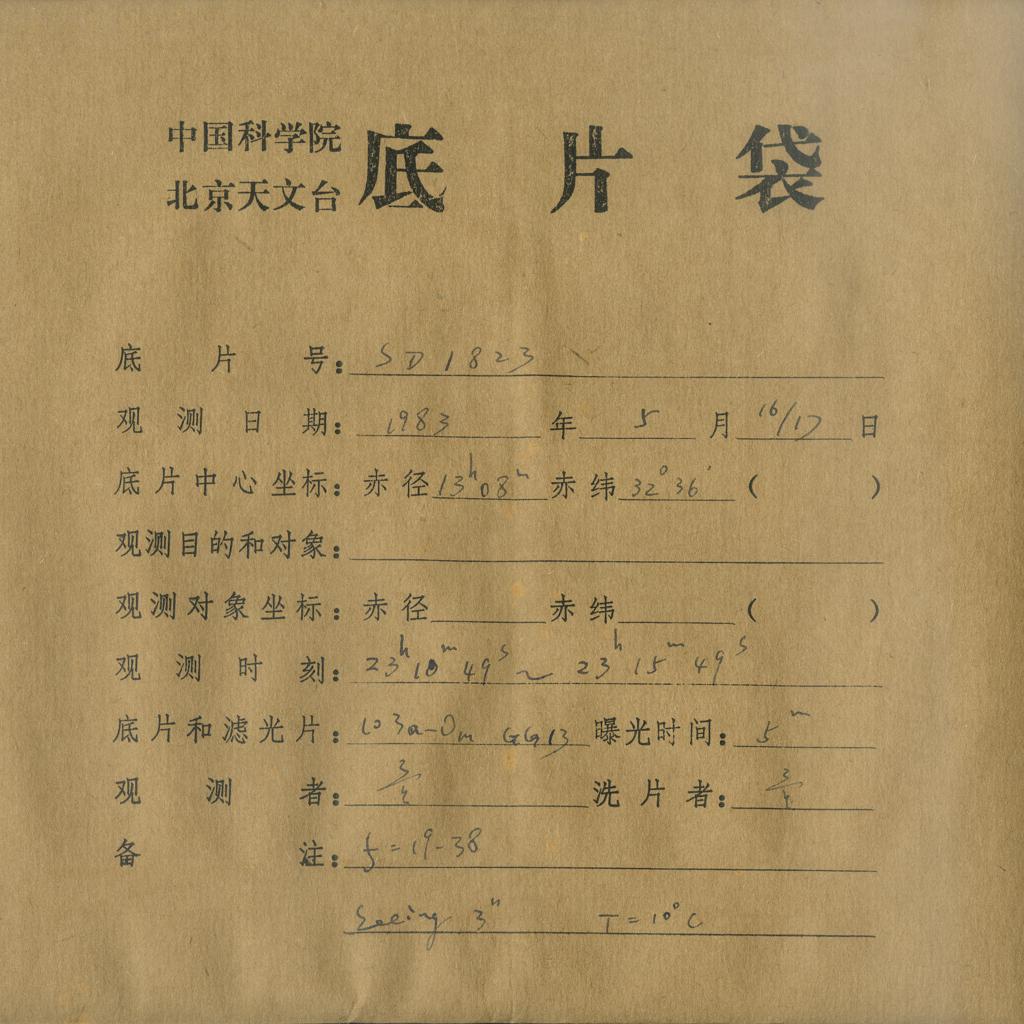 中国科学院
北京天文台
底片袋
底片号：SD1823
观测日期：1983年5月16/17日
底片中心坐标：赤径13h08m赤纬32°36′（ ）
观测目的和对象：
观测对象坐标：赤径 赤纬 （ ）
观测时刻：23h10m49s～23h15m49s
底片和滤光片：103a-Om GG13 曝光时间：5m
观测者： 洗片者：
备注：f=19-38
Seeing 3″ T=10°C